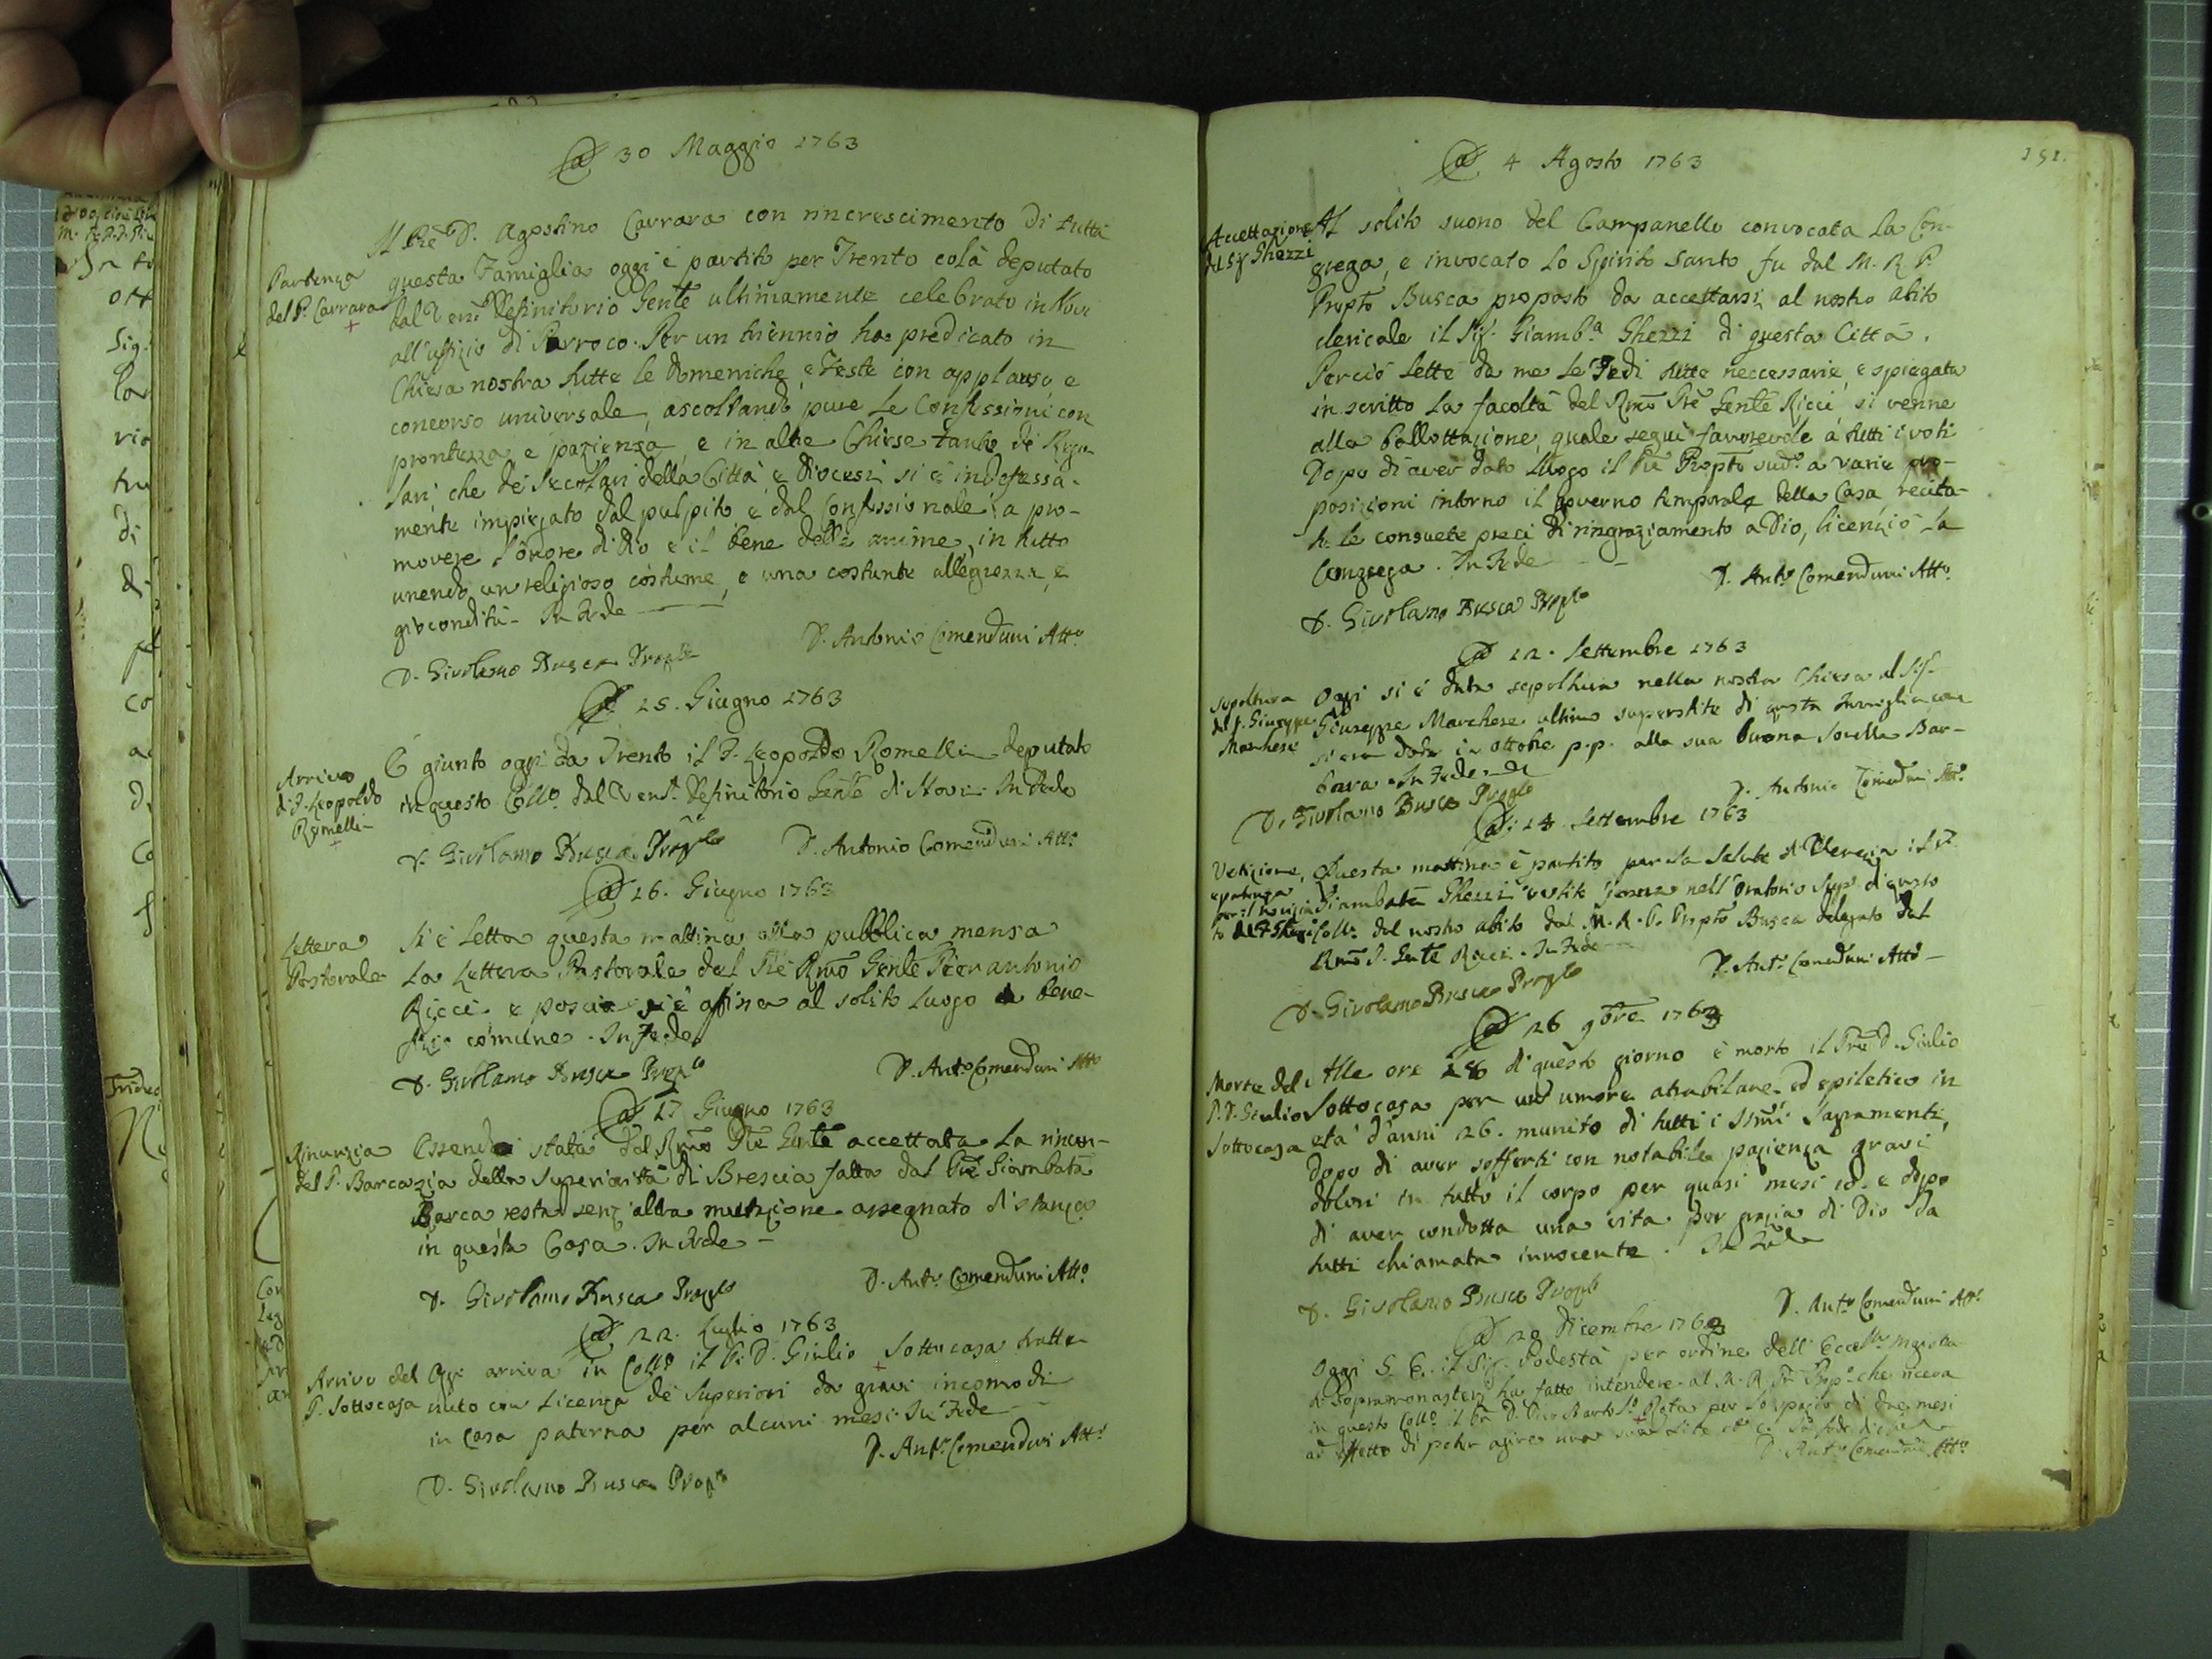 Adì 30 Maggio 1763
Partenza
del P. Carrara
Il Prē D. Agostino Carrara con rincrescimento di tutta
questa Famiglia oggi è partito per Trento colà deputato
dal Ven. Definitorio Gen̄te ultimamente celebrato in Novi
all'uffizio di Parroco. Per un triennio ha predicato in
Chiesa nostra tutte le domeniche, e Feste con applauso, e
concorso universale, ascoltando pure le Confessioni con
prontezza e pazienza, e in altre Chiese tanto de' Rego-
lari che de' Secolari della Città e diocesi si è indefessa-
mente impiegato dal pulpito e dal Confessionale a pro-
movere l'onore di Dio e il bene delle anime, in tutto
unendo un religioso costume, e una costante allegrezza, e
giocondità. In Fede
D. Girolamo Busca Prop.to D. Antonio Comenduni Att.o
Adì 25. Giugno 1763
Arrivo
di F. Leopoldo
Romelli
È giunto oggi da Trento il F. Leopoldo Romelli deputato
in questo Coll.o dal Ven. Definitorio Gen̄te di Novi. In Fede
D. Girolamo Busca Prop.to D. Antonio Comenduni Att.o
Adì 26. Giugno 1763
Lettera
Pastorale
Si è letta questa mattina alla pubblica mensa
la Lettera Pastorale del Prē Rm̄o Gen̄le Pierantonio
Ricci e poscia si è affissa al solito luogo a bene-
fizio comune. In Fede
D. Girolamo Busca Prop.to D. Ant.o Comenduni Att.o
Adì 27 Giugno 1763
Rinunzia
del P. Barca
Essendo stata dal Rm̄o Prē Gen̄te accettata la rinun-
zia della Superiorità di Brescia fatta dal Prē Giambatā
Barca resta senz'altra mutazione assegnato di stanza
in questa Casa. In Fede
D. Girolamo Busca Prop.to D. Ant.o Comenduni Att.o
Adì 22. Luglio 1763
Arrivo del
P. Sottocasa
Oggi arriva in Coll.o il P. D. Giulio Sottocasa tratte-
nuto con licenza de' Superiori da gravi incomodi
in Casa paterna per alcuni mesi. In Fede
D. Girolamo Busca Prop.to D. Ant.o Comenduni Att.o
151.
Adì 4 Agosto 1763
Accettazione
del Sig Ghezzi
Al solito suono del Campanello convocata la Con-
grega, e invocato lo Spirito Santo fu dal M. R. P
Prep̄to Busca proposto da accettarsi al nostro abito
clericale il Sig. Giamb.a Ghezzi di questa Città.
Perciò lette da me le Fedi tutte neccessarie, e spiegata
in scritto la facoltà del Rm̄o Prē Gen̄te Ricci si venne
alla ballottazione, quale seguì favorevole a tutti i voti
Dopo di aver dato luogo il Prē Prep̄to sud.o a varie pro-
posizioni intorno il governo temporale della Casa recita-
te le consuete preci di ringraziamento a Dio, licenziò la
Congrega. In Fede
D. Girolamo Busca Prop.to D. Ant.o Comenduni Att.o
Adì 12. Settembre 1763
Sepoltura
del S. Giuseppe
Marchese
Oggi si è data sepoltura nella nostra Chiesa al Sig.
Giuseppe Marchese ultimo superstite di questa Famiglia come
si era data in ottobre p.p. alla sua buona Sorella Bar-
bara. In Fede
D. Girolamo Busca Prop.to D. Antonio Comenduni Att.o
Adì 14 Settembre 1763
Vestizione,
e partenza
per il Novizia
to del F. Ghezzi
Questa mattina è partito per la Salute di Venezia il F.
Giambatā Ghezzi vestito nell'Oratorio Sup. di questo
Coll.o dal nostro abito dal M. R. P. Prep̄to Busca delegato dal
Rm̄o P. Gen̄te Ricci. In Fede
D. Girolamo Busca Prop.to D. Ant.o Comenduni Att.o
Adì 26 9bre 1763
Morte del
P. D. Giulio
Sottocasa
Alle ore 18 di questo giorno è morto il Prē D. Giulio
Sottocasa per un umore atrabilare ed epiletico in
età d'anni 26. munito di tutti i SSm̄i Sagramenti,
dopo di aver sofferti con notabile pazienza gravi
dolori in tutto il corpo per quasi mesi 10. e dopo
di aver condotta una vita per grazia di Dio da
tutti chiamata innocente. In Fede
D. Girolamo Busca Prop.to D. Ant.o Comenduni Att.o
Adì 20 Dicembre 1763
Oggi S. E. il Sig. Podestà per ordine dell'Eccell.mo
Sopramonasterj ha fatto intendere al M. R. Prē Prep.o che riceva
in questo Coll.o il Prē D. Rota per lo spazio di due mesi
ad effetto di poter agire una sua Lite
D. Ant.o Comenduni Att.o